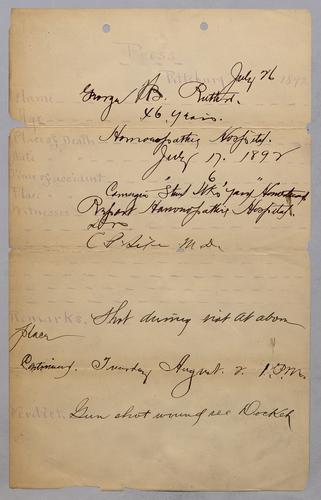 Press
Pittsburg July 26 189
Name George W. Rutter.
Age 46 Years.
Place of Death Homoeopathic Hospital.
Date July 17. 1892
Time of accident 6
Place Carnegie "Steel Wks" yard Homestead
Witnesses Report Homoeopathic Hospital
M.D.
Remarks. Shot during riot at above
place
Continued. Tuesday August. 2. 1. P.M.
Verdict. Gun shot wound see Docket